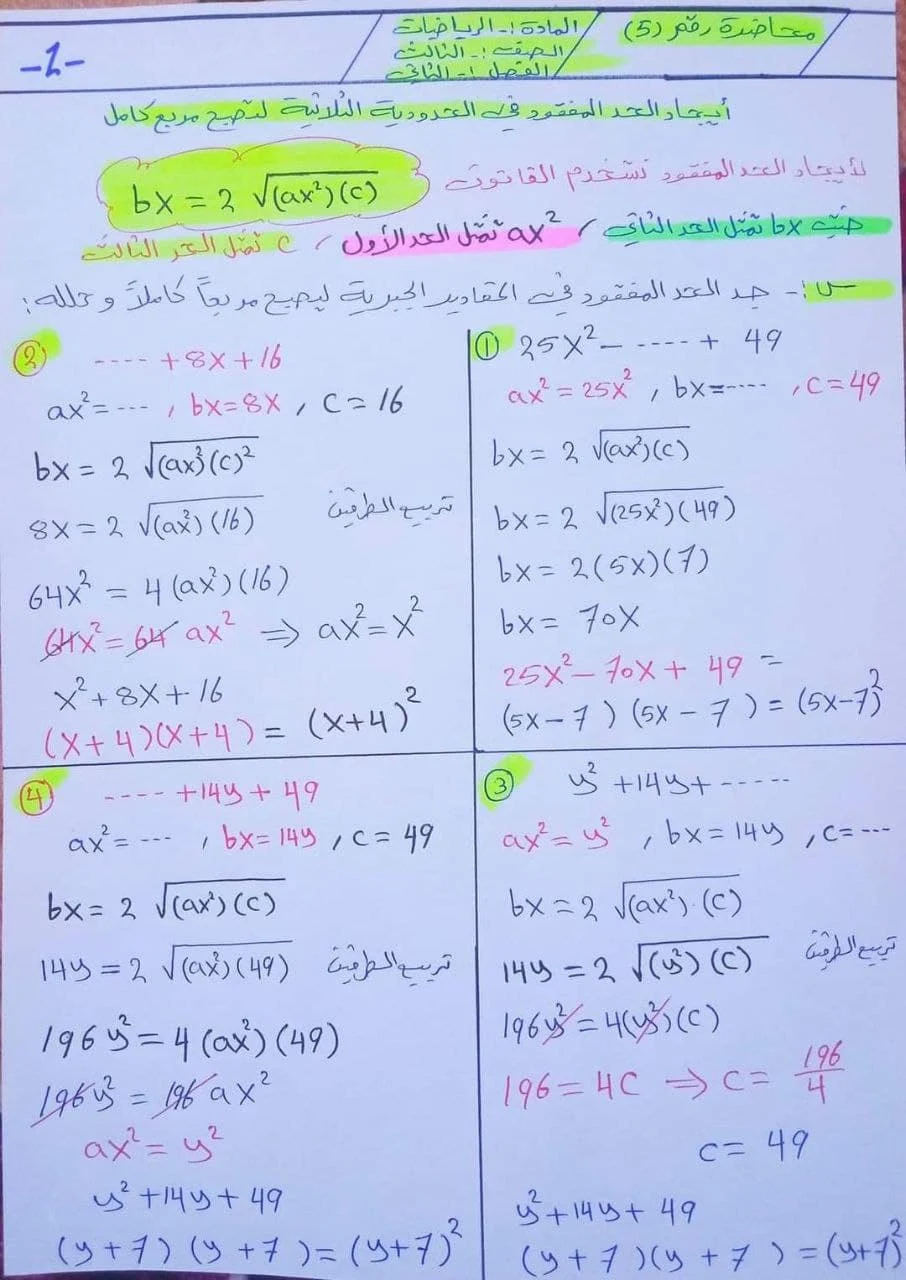 محاضرة رقم (5)
المادة :- الرياضيات
الصف :- الثالث
الفصل :- الثاني
-1-
أيجاد الحد المفقود في الحدودية الثلاثية لتصبح مربع كامل
لأيجاد الحد المفقود نستخدم القانون
bx = 2 √(ax²)(c)
حيث bx تمثل الحد الثاني / ax² تمثل الحد الأول / c تمثل الحد الثالث
س :- جد الحد المفقود في المقادير الجبرية ليصبح مربعاً كاملاً وحلله :
① 25x² - ---- + 49
ax² = 25x² , bx = ---- , c = 49
bx = 2 √(ax²)(c)
bx = 2 √(25x²)(49)
bx = 2(5x)(7)
bx = 70x
25x² - 70x + 49 =
(5x - 7) (5x - 7) = (5x-7)²
② ---- + 8x + 16
ax² = --- , bx = 8x , c = 16
bx = 2 √(ax²)(c)²
8x = 2 √(ax²)(16) تربيع الطرفين
64x² = 4(ax²)(16)
64x² = 64 ax² ⇒ ax² = x²
x² + 8x + 16
(x+4)(x+4) = (x+4)²
③ y² + 14y + -----
ax² = y² , bx = 14y , c = ---
bx = 2 √(ax²).(c)
14y = 2 √(y²)(c) تربيع الطرفين
196y² = 4(y²)(c)
196 = 4c ⇒ c = 196/4
c = 49
y² + 14y + 49
(y + 7)(y + 7) = (y+7)²
④ ---- + 14y + 49
ax² = --- , bx = 14y , c = 49
bx = 2 √(ax²)(c)
14y = 2 √(ax²)(49) تربيع الطرفين
196y² = 4(ax²)(49)
196y² = 196 ax²
ax² = y²
y² + 14y + 49
(y + 7) (y + 7) = (y+7)²